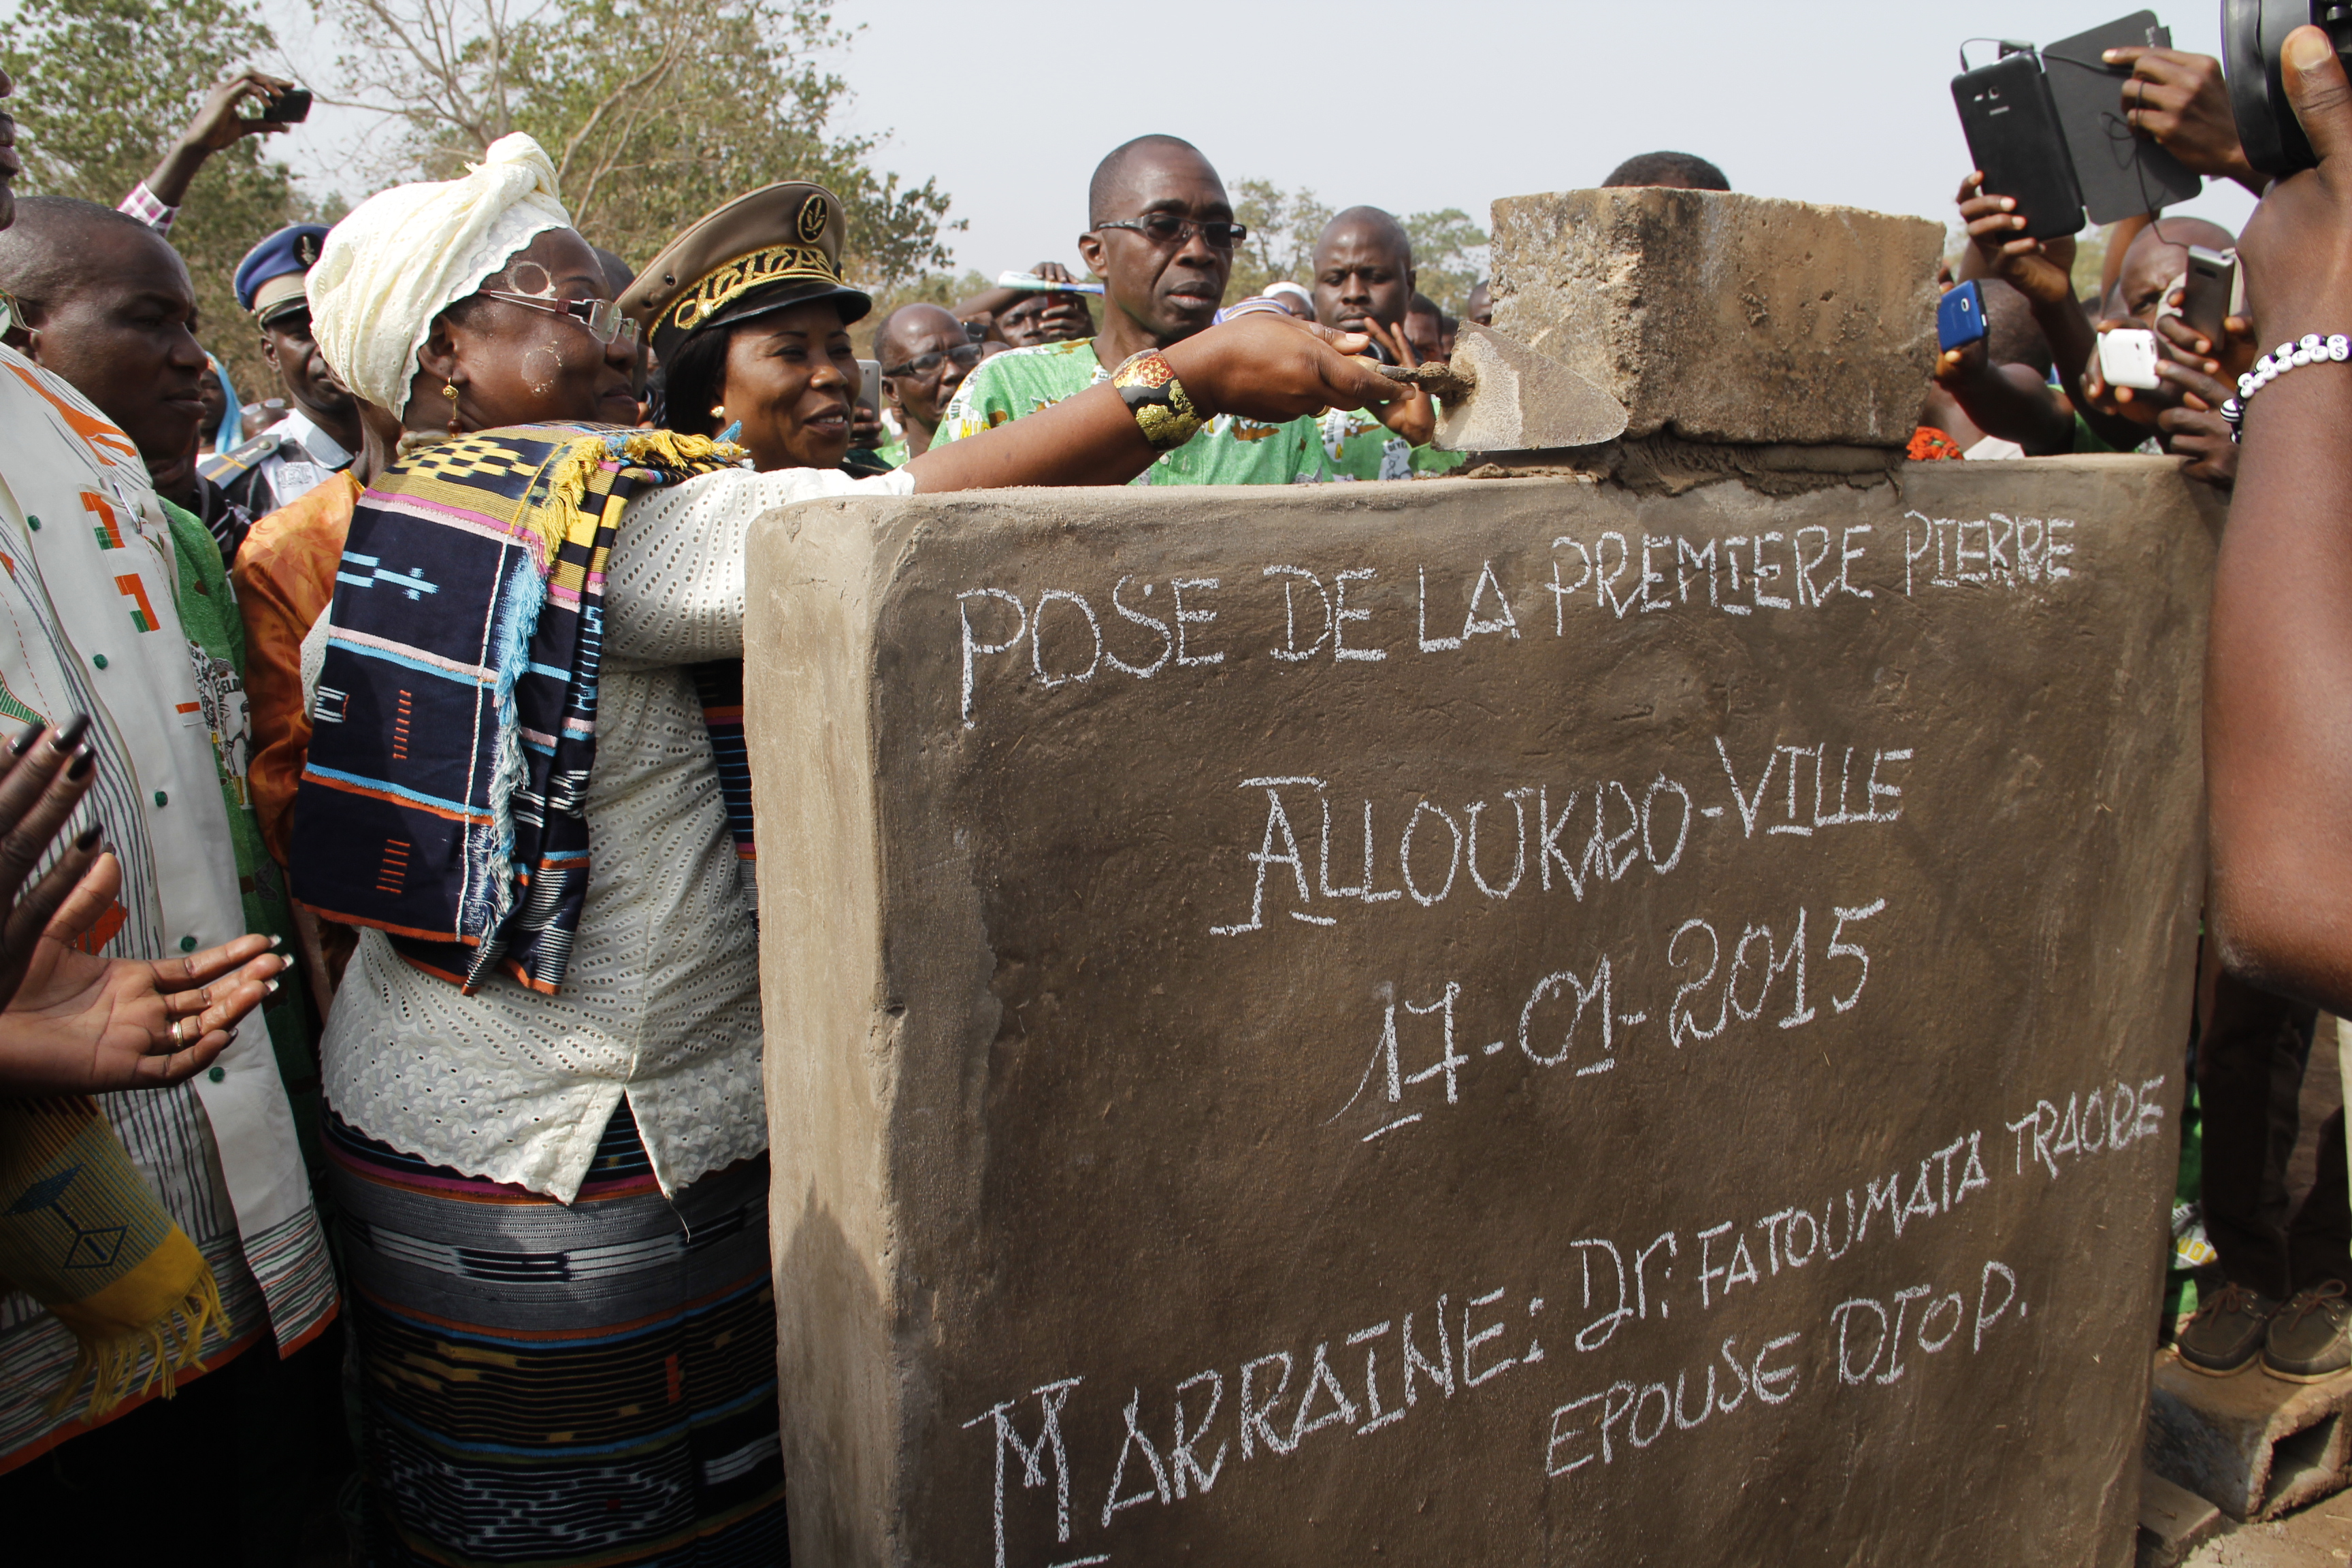 POSE DE LA PREMIERE PIERRE
ALLOUKRO-VILLE
17-01-2015
MARRAINE: Dr. FATOUMATA TRAORE
EPOUSE DIOP.